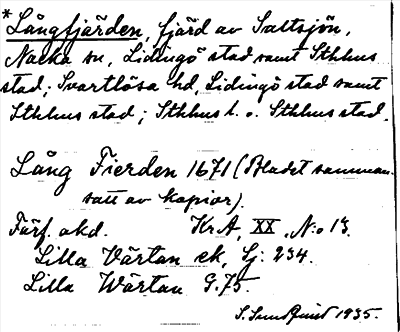 * Långfjärden, fjärd av Saltsjön,
Nacka sn, Lidingö stad samt Sthlms
stad; Svartlösa hd, Lidingö stad samt
Sthlms stad; Sthlms l. o. Sthlms stad.
Lång Fierden 1671 (Bladet samman-
satt av kopior).
Förf. okd. Kr.A, XX, No 13.
Lilla Värtan ek, Lj. 234.
Lilla Wärtan G.75.
S. Sundquist 1935.